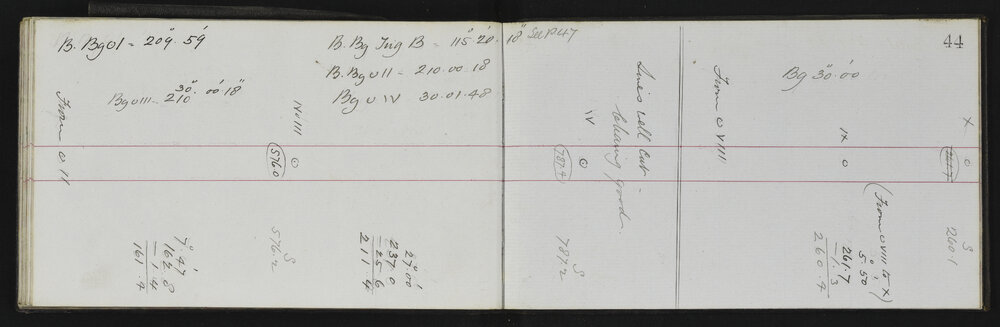 B. Bg ⊙I = 209°. 59'
B. Bg Trig B = 115°. 20'. 18" See P 47
B. Bg ⊙ II = 210. 00. 18
Bg ⊙ IV 30. 01. 48
Bg ⊙ III = 210
30°. 00'. 18"
From ⊙ II
No III
⊙
5760
S
576.2
7°. 47'
162.8
- 1.4
161.4
27°. 00'
237.0
- 25.6
211.4
IV
⊙
787.4
S
787.2
Lines well cut -
Chaing good.
44
From ⊙ VIII
Bg 30°. 00'
IX
⊙
(From ⊙ VIII to X)
5°. 50'
261.7
- 1.3
260.4
X
⊙
S
260.1